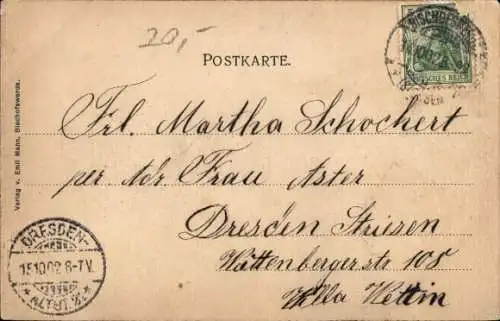 20,-
POSTKARTE.
DEUTSCHES REICH
Frl. Martha Schochert
per. Adr Frau Aster
Dresden Striesen
Wittenbergerstr 108
Villa Wettin
Verlag v. Emil Mann, Bischofswerda.
DRESDEN-
15.10.02. 6-7V.